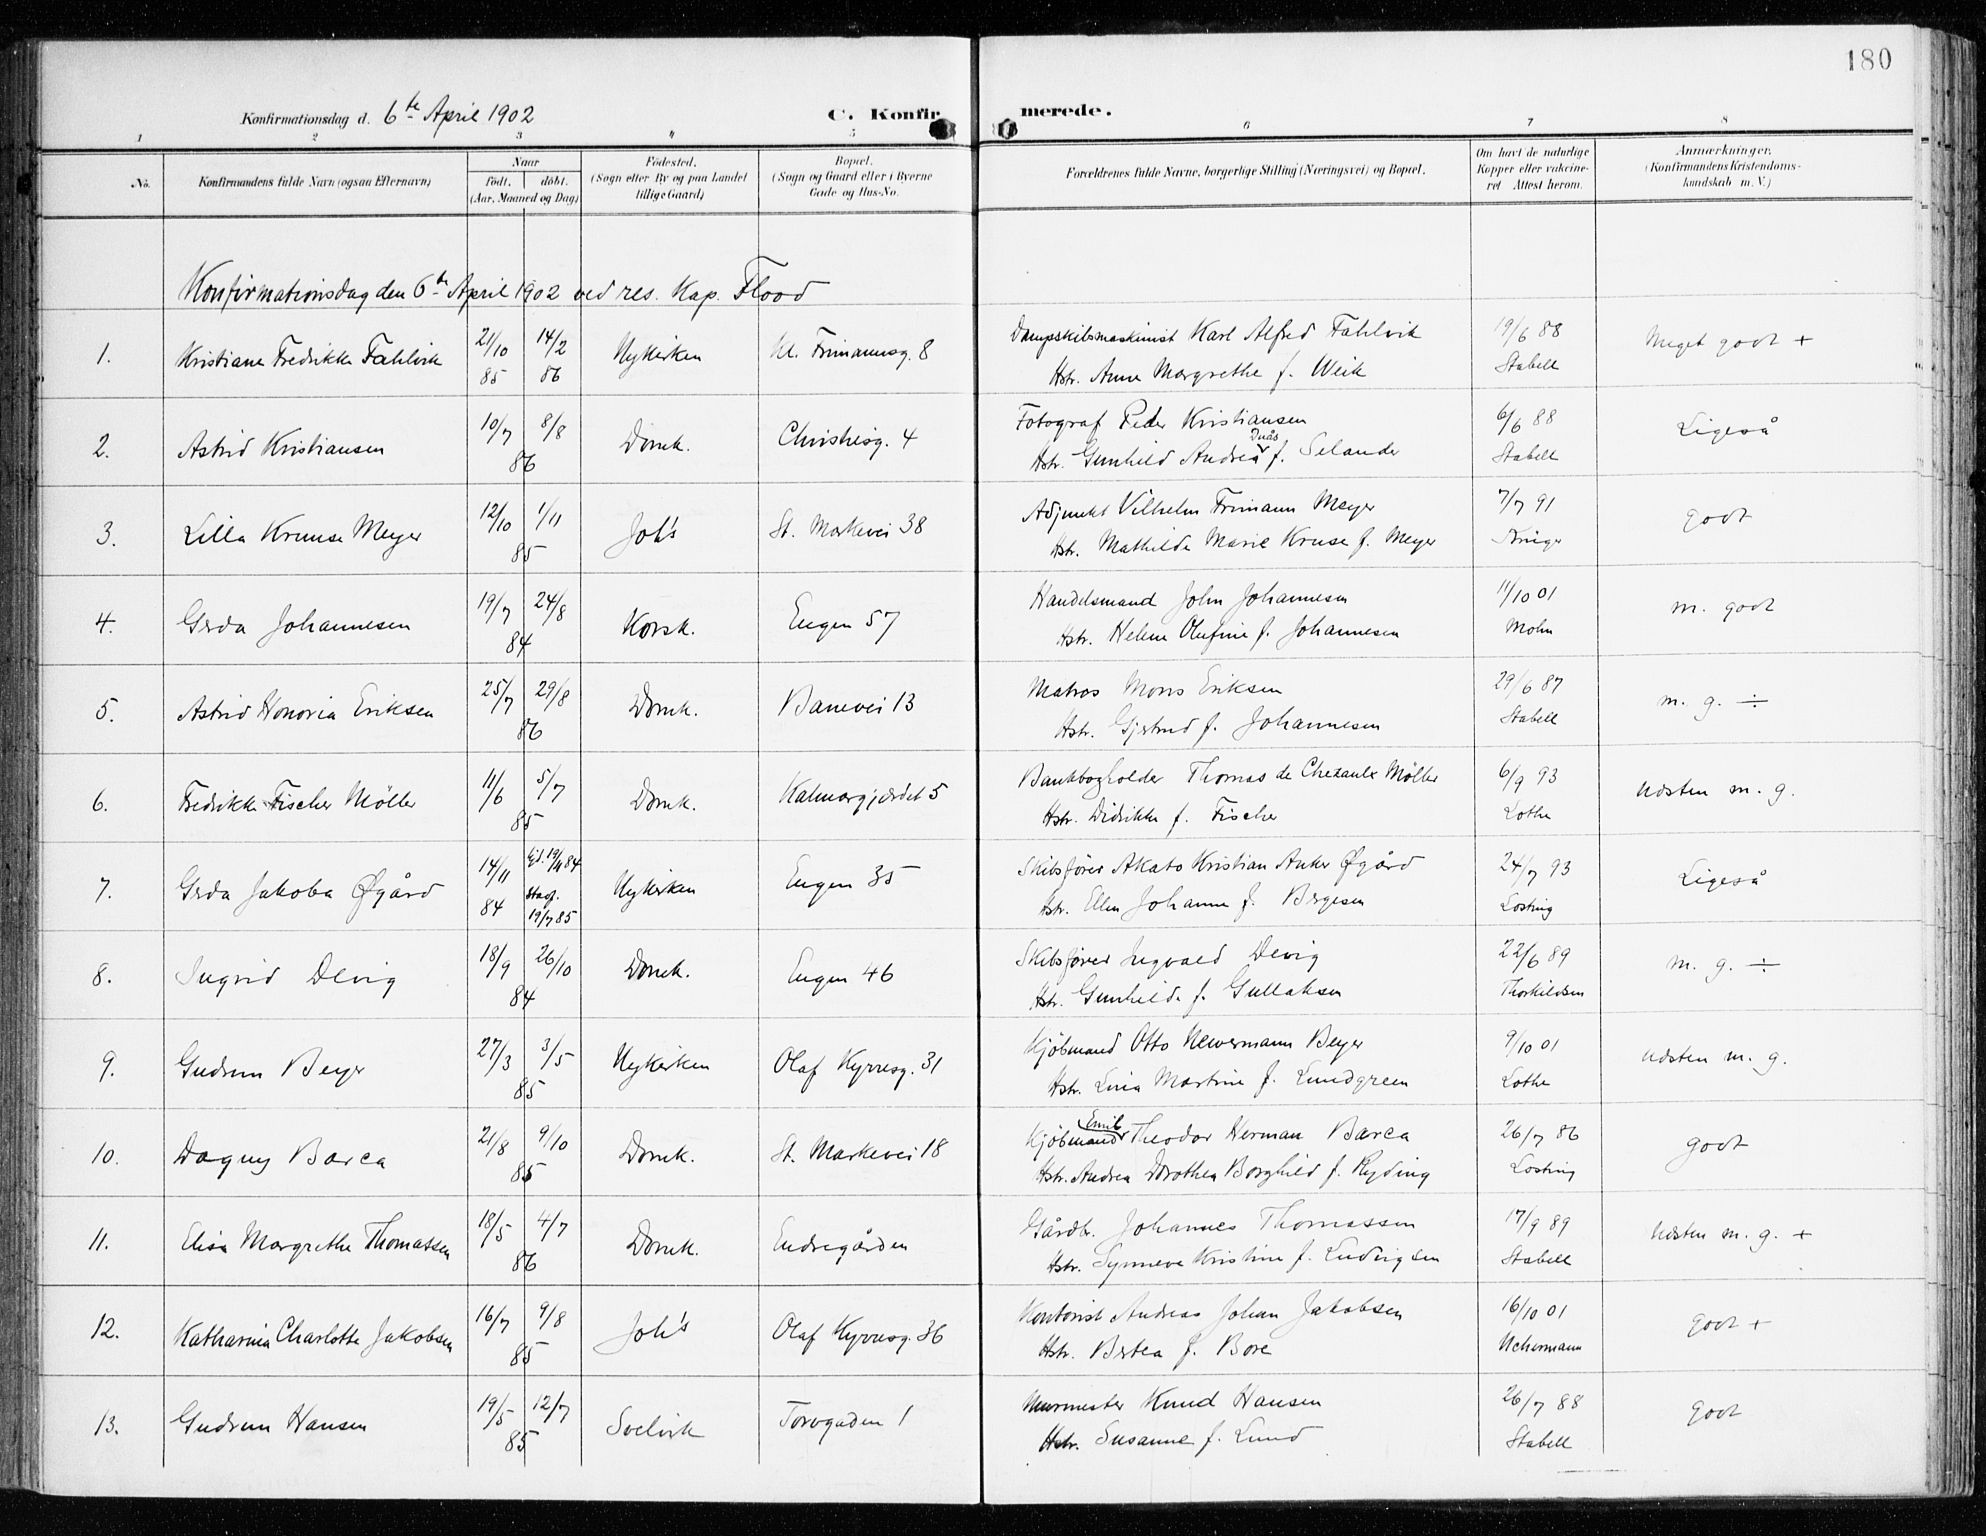 180
Konfirmationsdag d. 6te April 1902 C. Konfir merede.
1 2 3 4 5 6 7 8
No. Konfirmandens fulde Navn (ogsaa Efternavn) Naar födt. döbt. (Aar, Maaned og Dag) Födested. (Sogn eller By og paa Landet tillige Gaard) Bopæl. (Sogn og Gaard eller i Byerne Gade og Hus-No. Forældrenes fulde Navne, borgerlige Stilling (Næringsvei) og Bopæl. Om havt de naturlige Kopper eller vakcineret Attest herom. Anmærkninger. (Konfirmandens Kristendomskundskab m. V.)
Konfirmationsdag den 6te April 1902 ved res. Kap. Flood
1. Kristiane Fredrikke Fahlvik 21/10 85 14/2 86 Nykirken Kl. Frimannsg. 8 Dampskibsmaskinist Karl Alfred Fahlvik 19/6 88 Meget godt +
Hstr. Anne Margrethe f. Weik Stabell
2. Astrid Kristiansen 10/7 8/8 86 Domk. Christiesg. 4 Fotograf Peder Kristiansen 6/6 88 Ligeså
Hstr. Gunhild Andrea Dnås f. Selander Stabell
3. Lilla Kruuse Meyer 12/10 1/11 85 Joh's St. Markevei 38 Adjunkt Vilhelm Frimann Meyer 7/7 91 godt
Hstr. Mathilde Marie Kruse f. Meyer
4. Gerda Johannesen 19/7 24/8 84 Korsk. Engen 57 Handelsmand John Johannesen 11/10 01 m. godt
Hstr. Helene Olufine f. Johannesen Mohn
5. Astrid Honoria Eriksen 25/7 29/8 86 Domk. Banevei 13 Matros Mons Eriksen 29/6 87 m. g. ÷
Hstr. Gjertrud f. Johannesen Stabell
6. Fredrikke Fischer Möller 11/6 5/7 85 Domk. Kalmargjærdet 5 Bankbogholder Thomas de Chezaulx Möller 6/9 93 Næsten m. g.
Hstr. Didrikke f. Fischer Lothe
7. Gerda Jakoba Øgård 14/11 84 hjd. 19/11 84 Stad. 19/7 85 Nykirken Engen 35 Skibsfører Akato Kristian Anker Øgård 24/7 93 Ligeså
Hstr. Ellen Johanne f. Bergesen Losting
8. Ingrid Devig 18/9 26/10 84 Domk. Engen 46 Skibsfører Ingvald Devig 22/6 89 m. g. ÷
Hstr. Gunhilde f. Gullaksen Thorkildsen
9. Gudrun Beyer 27/3 3/5 85 Nykirken Olaf Kyrresg. 31 Kjøbmand Otto Newermann Beyer 9/10 01 Næsten m. g.
Hstr. Lina Martine f. Lundgreen Lothe
10. Dagny Barca 21/8 9/10 85 Domk. St. Markevei 18 Kjøbmand Emil Theodor Herman Barca 26/7 86 godt
Hstr. Andrea Dorothea Borghild f. Ryding Losting
11. Elisa Margrethe Thomassen 18/5 4/7 86 Domk. Endregården Gårdbr. Johannes Thomassen 17/9 89 Næsten m. g. +
Hstr. Synneve Kristine f. Ludvigsen Stabell
12. Katharina Charlotte Jakobsen 16/7 9/8 85 Joh's Olaf Kyrresg. 36 Kontorist Andreas Johan Jakobsen 16/10 01 godt +
Hstr. Bertea f. Bore Uchermann
13. Gudrun Hansen 19/5 12/7 85 Svelvik Torvgaden 1 Murmester Knud Hansen 26/7 88 godt
Hstr. Susanne f. Lund Stabell